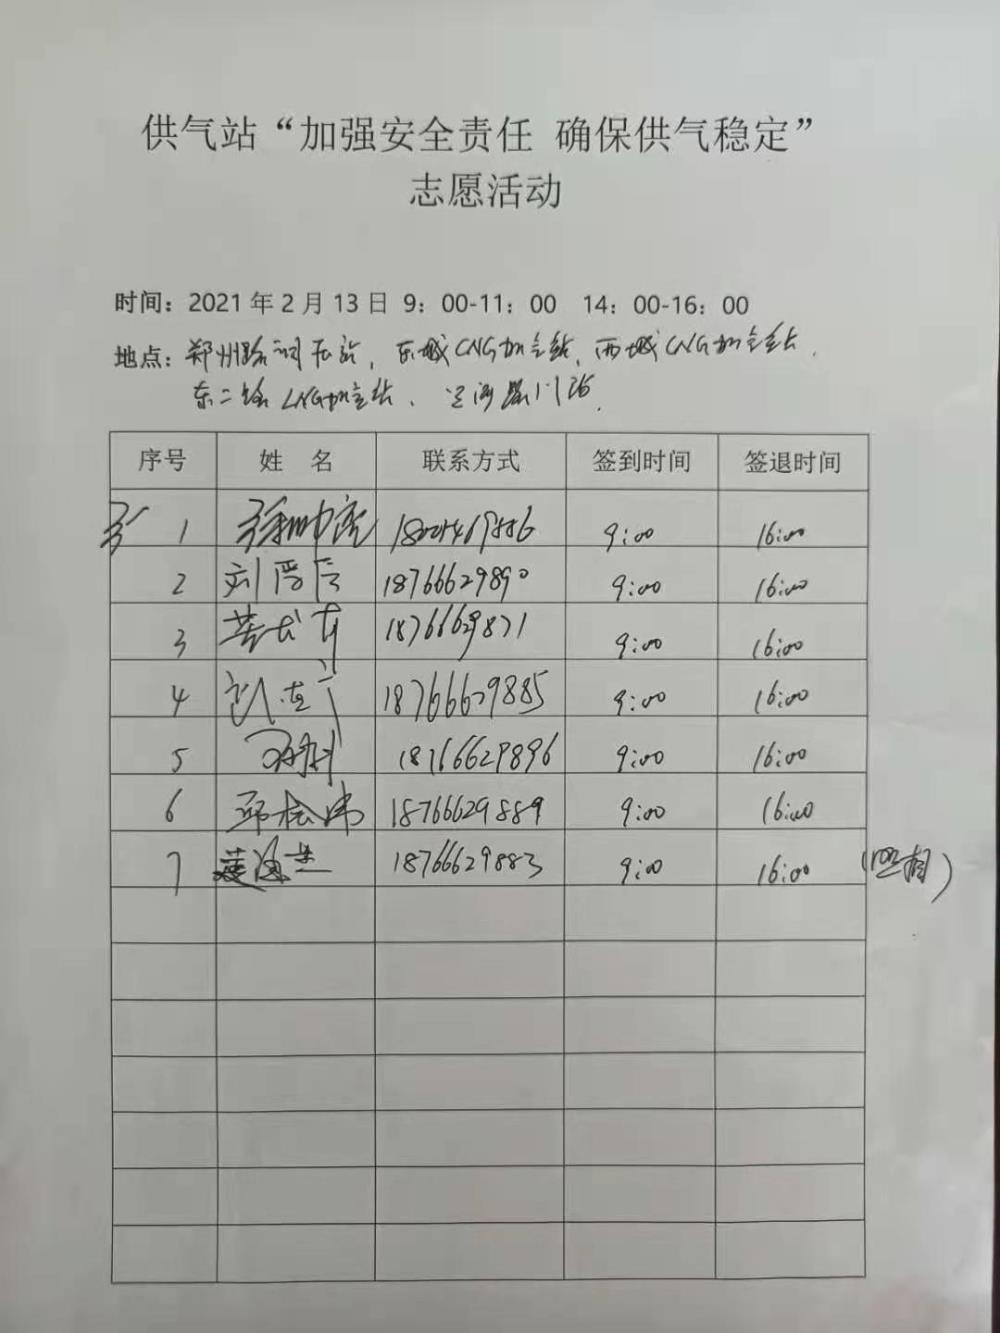 供气站“加强安全责任 确保供气稳定”
志愿活动
时间：2021年2月13日 9：00-11：00 14：00-16：00
地点：郑州路调压站，东城CNG加气站，西城CNG加气站，
东二路LNG加气站、
序号 姓 名 联系方式 签到时间 签退时间
1 9:00 16:00
2 刘晋 18766629890 9:00 16:00
3 18766629871 9:00 16:00
4 18766629885 9:00 16:00
5 18766629896 9:00 16:00
6 邱松涛 18766629889 9:00 16:00
7 18766629883 9:00 16:00 (照相)